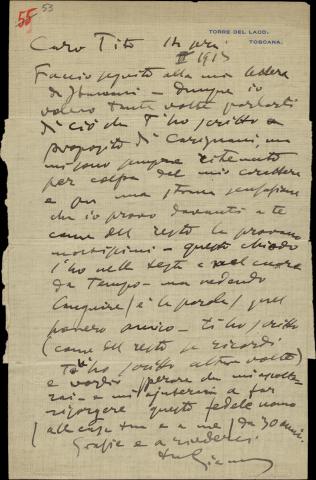 55 53
TORRE DEL LAGO,
TOSCANA.
Caro Tito 14
II 1913
Faccio seguito alla mia lettera
di stamani – Dunque io
volevo tante volte parlarti
di ciò che T'ho scritto a
proposito di Carignani, ma
mi sono sempre ritenuto
per colpa del mio carattere
e per una strana sensazione
che io provo davanti a te
come del resto la provano
moltissimi – questo chiodo
l'ho nella testa e nel cuore
da tempo – ma vedendo
languire (è la parola) quel
povero amico – ti ho scritto
(come del resto se ricordi
te l'ho scritto altre volte)
e vorrei sperare che mi ascolte-
rai e mi aiuterai a far
risorgere questo fedele uomo
(alla casa tua e a me) da 30 anni.
Grazie e a rivederci